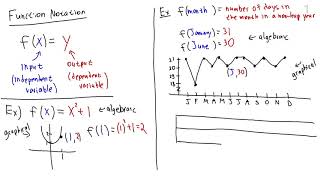 Function Notation
f(x) = y
input
(independent
variable)
output
(dependent
variable)
Ex) f(x) = x²+1 ← algebraic
graphical
f(1) = (1)²+1 = 2
(1,2)
1
Ex f(month) = number of days in
the month in a non-leap year
f(January) = 31
f(June) = 30
← algebraic
graphical
31
30
29
28
(J,30)
J F M A M J J A S O N D